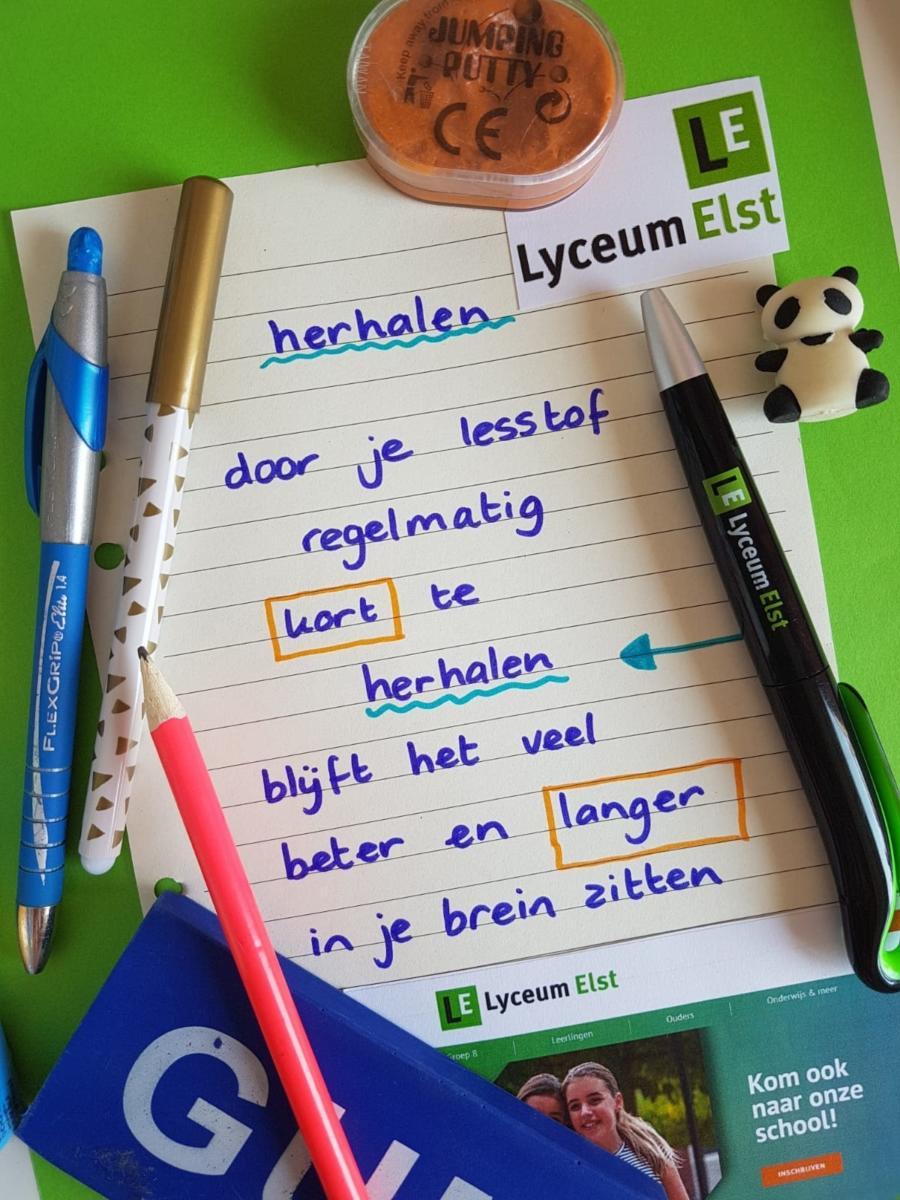 Keep away from
JUMPING
PUTTY
CE
LE
Lyceum Elst
herhalen
door je lesstof
regelmatig
kort te
herhalen
blijft het veel
beter en langer
in je brein zitten
FLEXGRIP Elite 1.4
LE Lyceum Elst
LE Lyceum Elst
Groep 8 Leerlingen Ouders Onderwijs & meer
Kom ook
naar onze
school!
INSCHRIJVEN